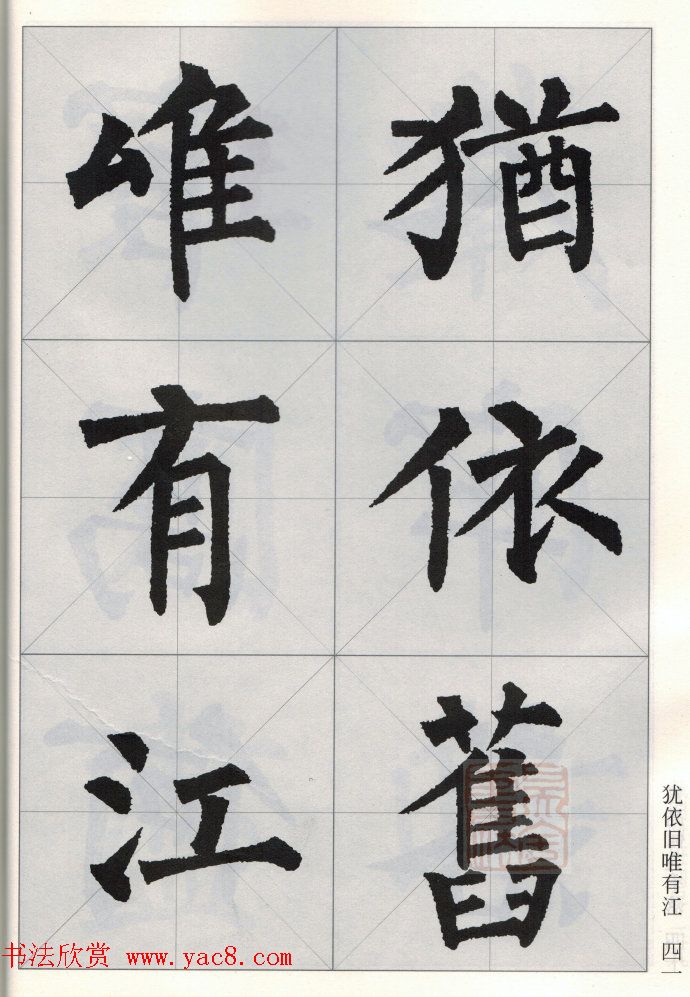 猶
依
舊
唯
有
江
犹依旧唯有江 四一
书法欣赏 www.yac8.com